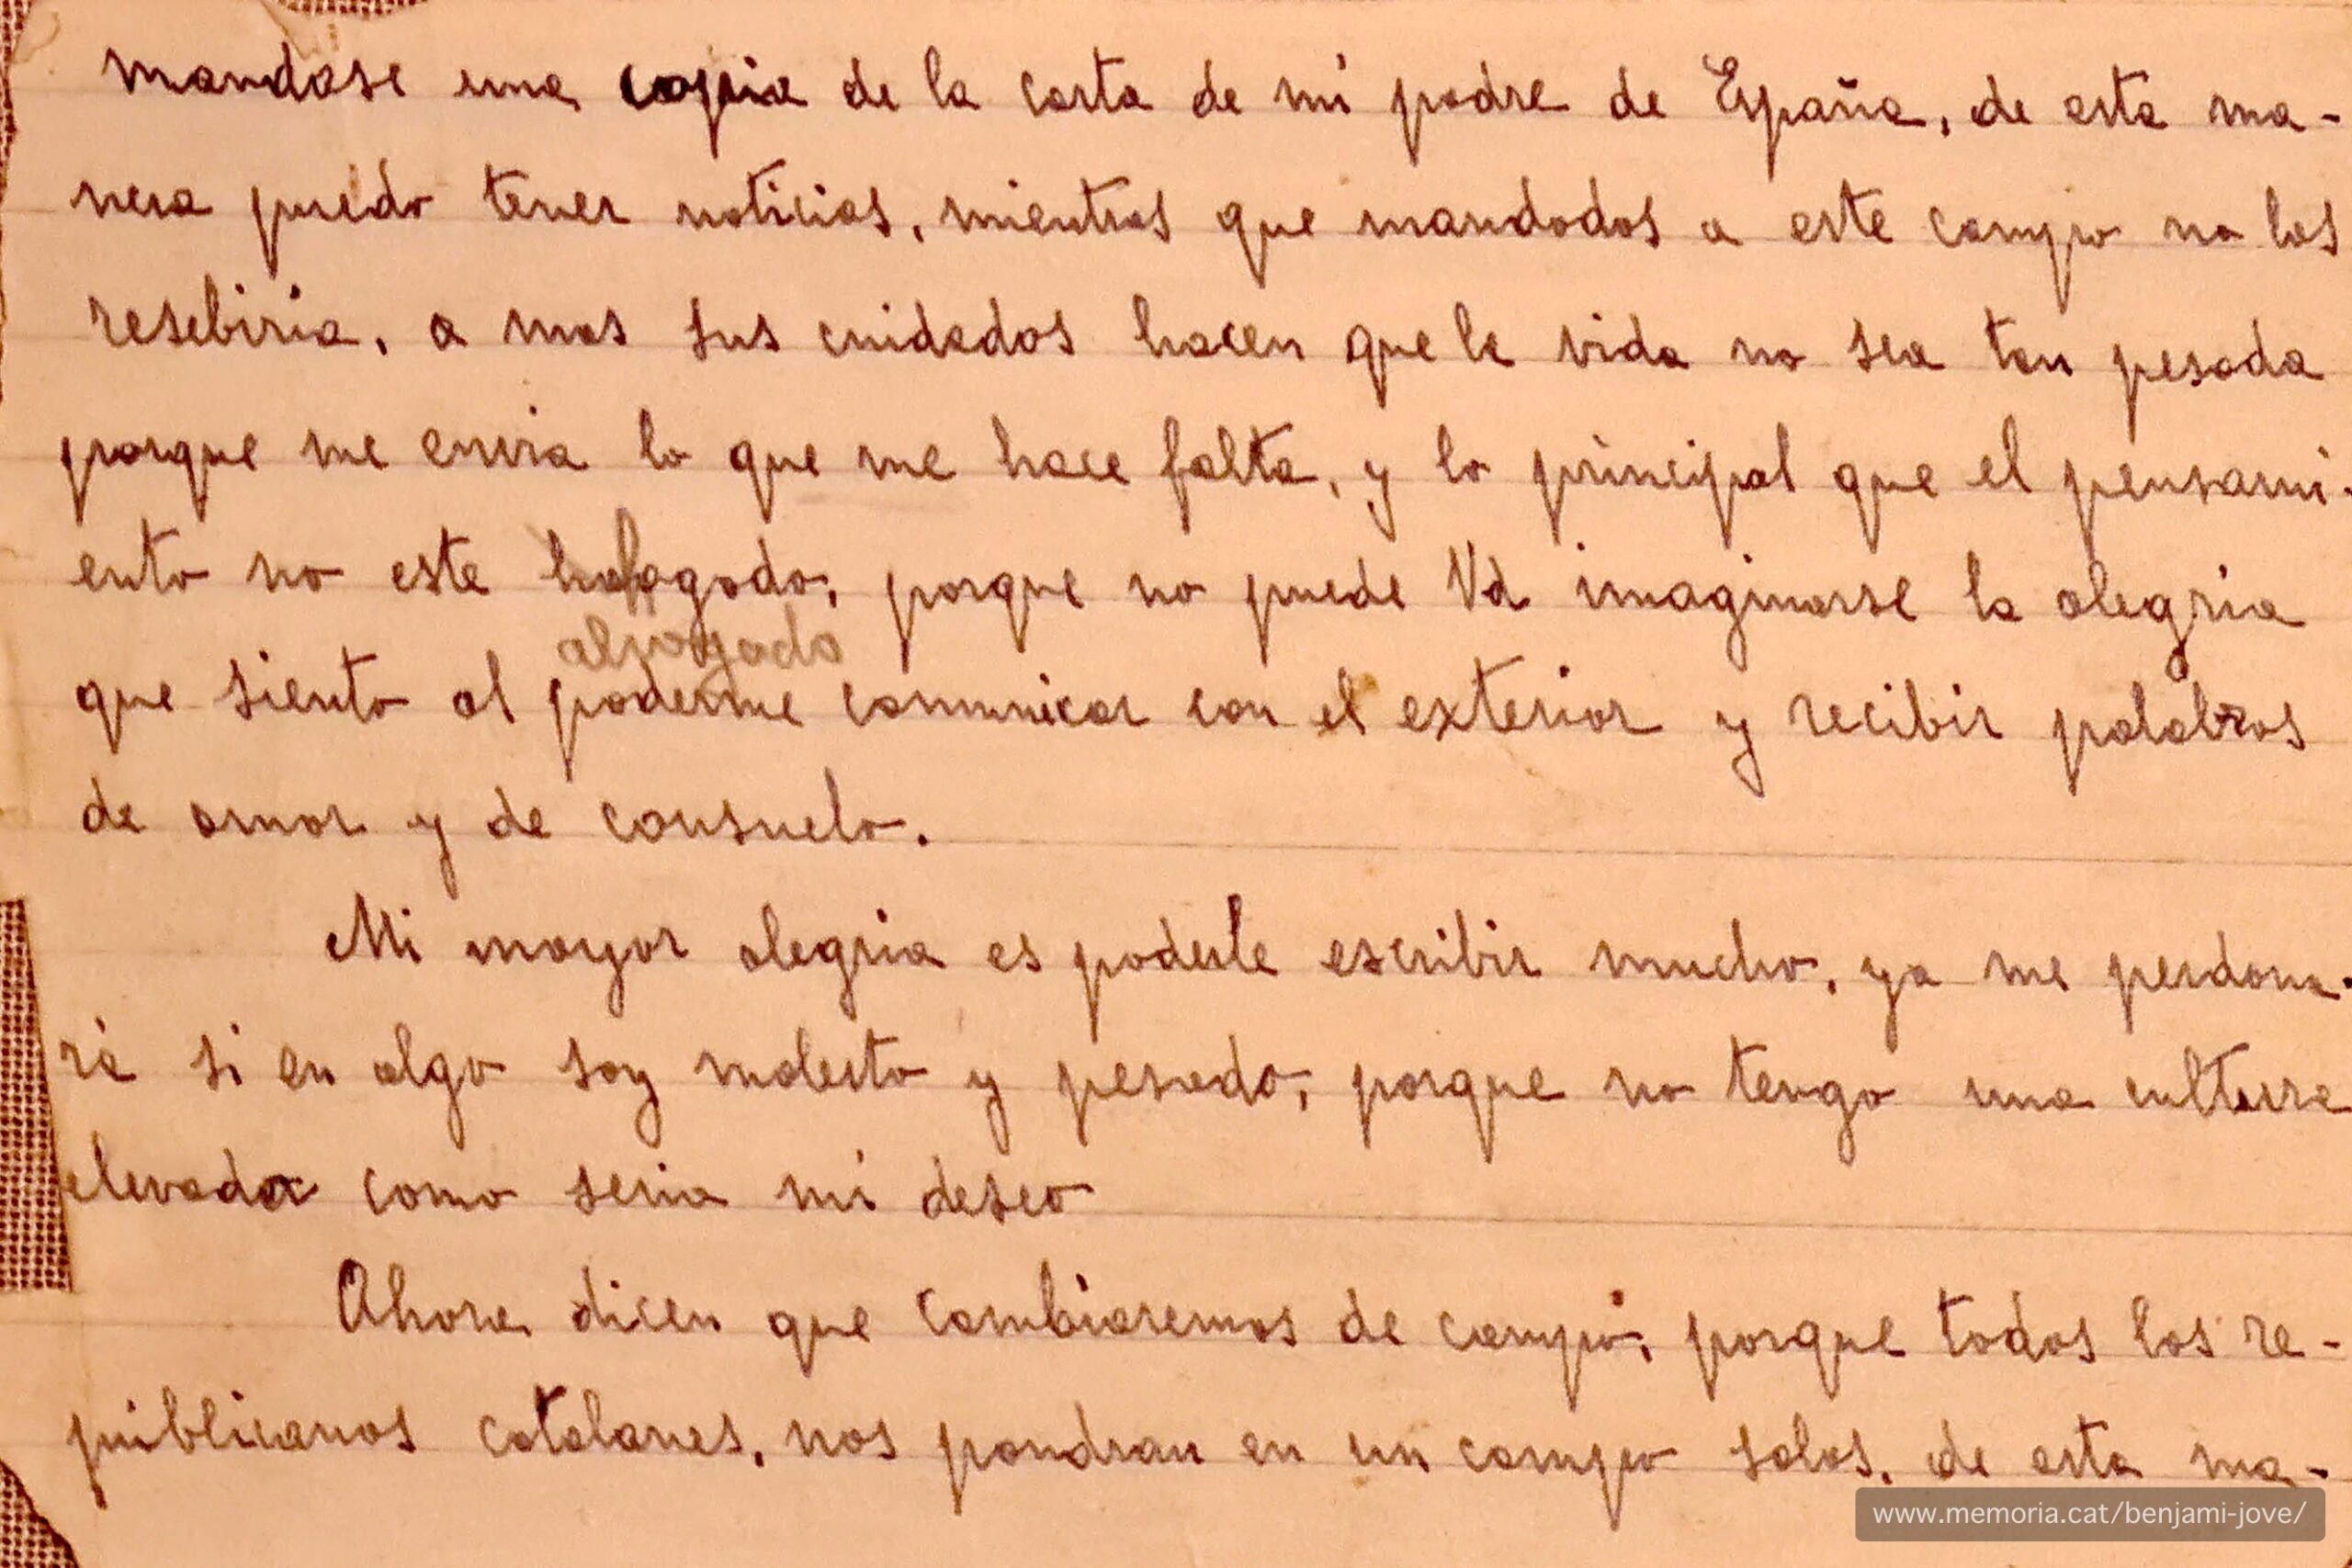 mandase una copia de la carta de mi padre de España, de esta ma-
nera puedo tener noticias, mientras que mandados a este campo no las
resebiria, a mas sus cuidados hacen que la vida no sea tan pesada
porque me envia lo que me hace falta, y lo principal que el pensami-
ento no este porque no puede Vd imaginarse la alegria
que siento al poderme comunicar con el exterior y recibir palabras
de amor y de consuelo.
Mi mayor alegria es poderle escribir mucho, ya me perdona-
rá si en algo soy molesto y pesado, porque no tengo una cultura
elevada como seria mi deseo
Ahora dicen que cambiaremos de campo, porque todos los re-
publicanos catalanes, nos pondran en un campo solos, de esta ma-
www.memoria.cat/benjami-jove/